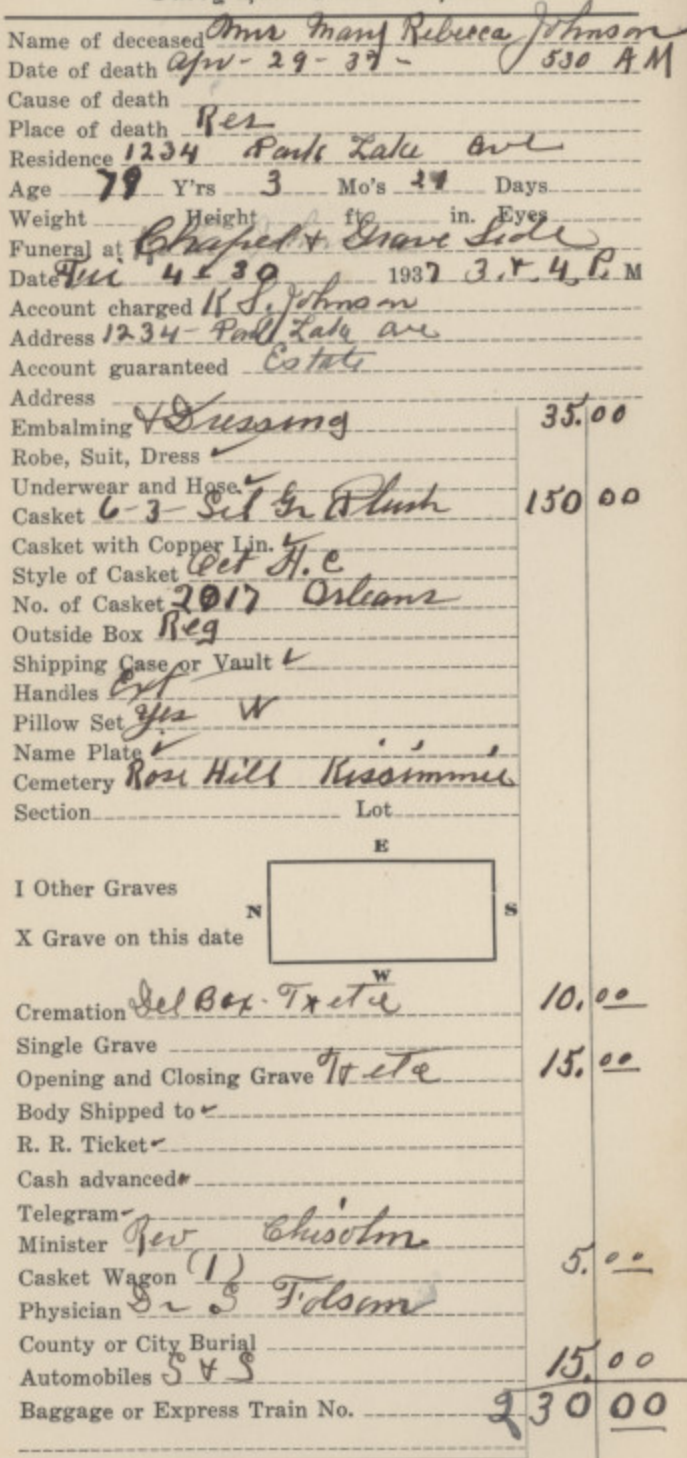 Name of deceased Mrs Mary Rebecca Johnson
Date of death Apr - 29 - 37 - 530 A M
Cause of death
Place of death Res
Residence 1234 Park Lake Ave
Age 79 Y'rs 3 Mo's Days
Weight Height ft. in. Eyes
Funeral at Chapel & Grave Side
Date 4 - 30 1937 3 & 4 P. M
Account charged K S. Johnson
Address 1234 - Park Lake ave
Account guaranteed Estate
Address
Embalming & Dressing 35.00
Robe, Suit, Dress ✓
Underwear and Hose ✓
Casket 6-3- Sil Gr Plush 150 00
Casket with Copper Lin. ✓
Style of Casket Oct H. C
No. of Casket 2017 Orleans
Outside Box Reg
Shipping Case or Vault ✓
Handles Ext
Pillow Set yes W
Name Plate ✓
Cemetery Rose Hill Kissimmee
Section Lot
E
I Other Graves
N S
X Grave on this date
W
Cremation Del Box - 10.00
Single Grave
Opening and Closing Grave 15.00
Body Shipped to ✓
R. R. Ticket ✓
Cash advanced
Telegram
Minister Rev Chisolm
Casket Wagon (1) 5.00
Physician Dr S Folsom
County or City Burial
Automobiles S & S 15.00
Baggage or Express Train No. 230 00